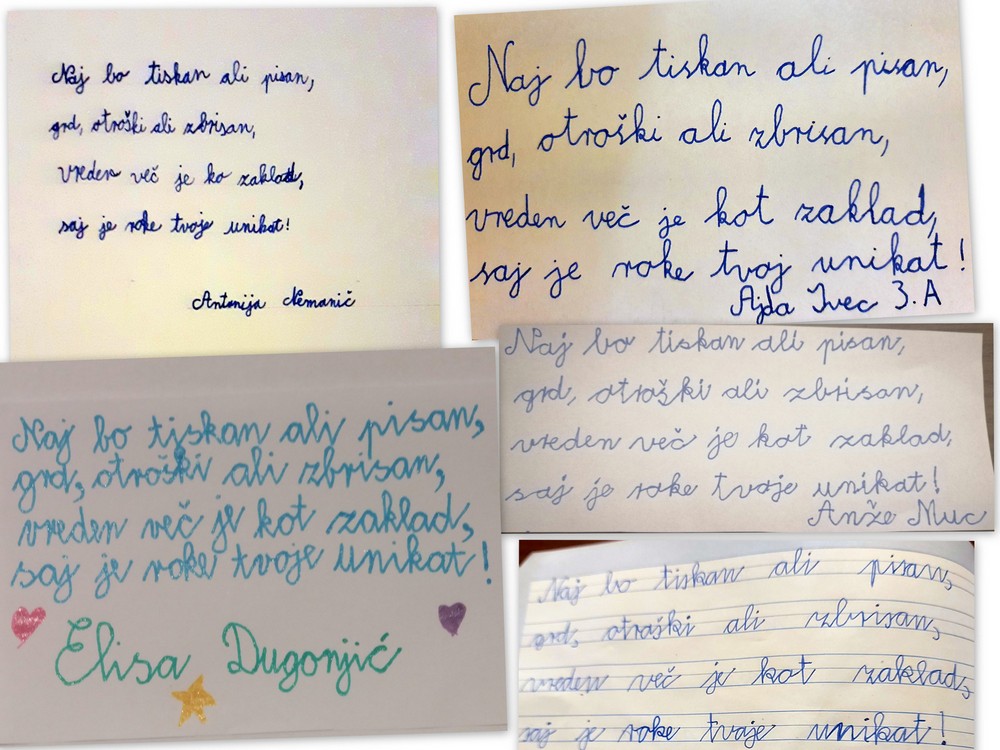 Naj bo tiskan ali pisan,
grd, otroški ali zbrisan,
vreden več je ko zaklad,
saj je roke tvoje unikat!
Antonija Nemanič
Naj bo tiskan ali pisan,
grd, otroški ali zbrisan,
vreden več je kot zaklad,
saj je roke tvoj unikat!
Ajda Ivec 3. A
Naj bo tiskan ali pisan,
grd, otroški ali zbrisan,
vreden več je kot zaklad,
saj je roke tvoje unikat!
Elisa Dugonjić
Naj bo tiskan ali pisan,
grd, otroški ali zbrisan,
vreden več je kot zaklad,
saj je roke tvoje unikat!
Anže Muc
Naj bo tiskan ali pisan,
grd, otroški ali zbrisan,
vreden več je kot zaklad,
saj je roke tvoje unikat!